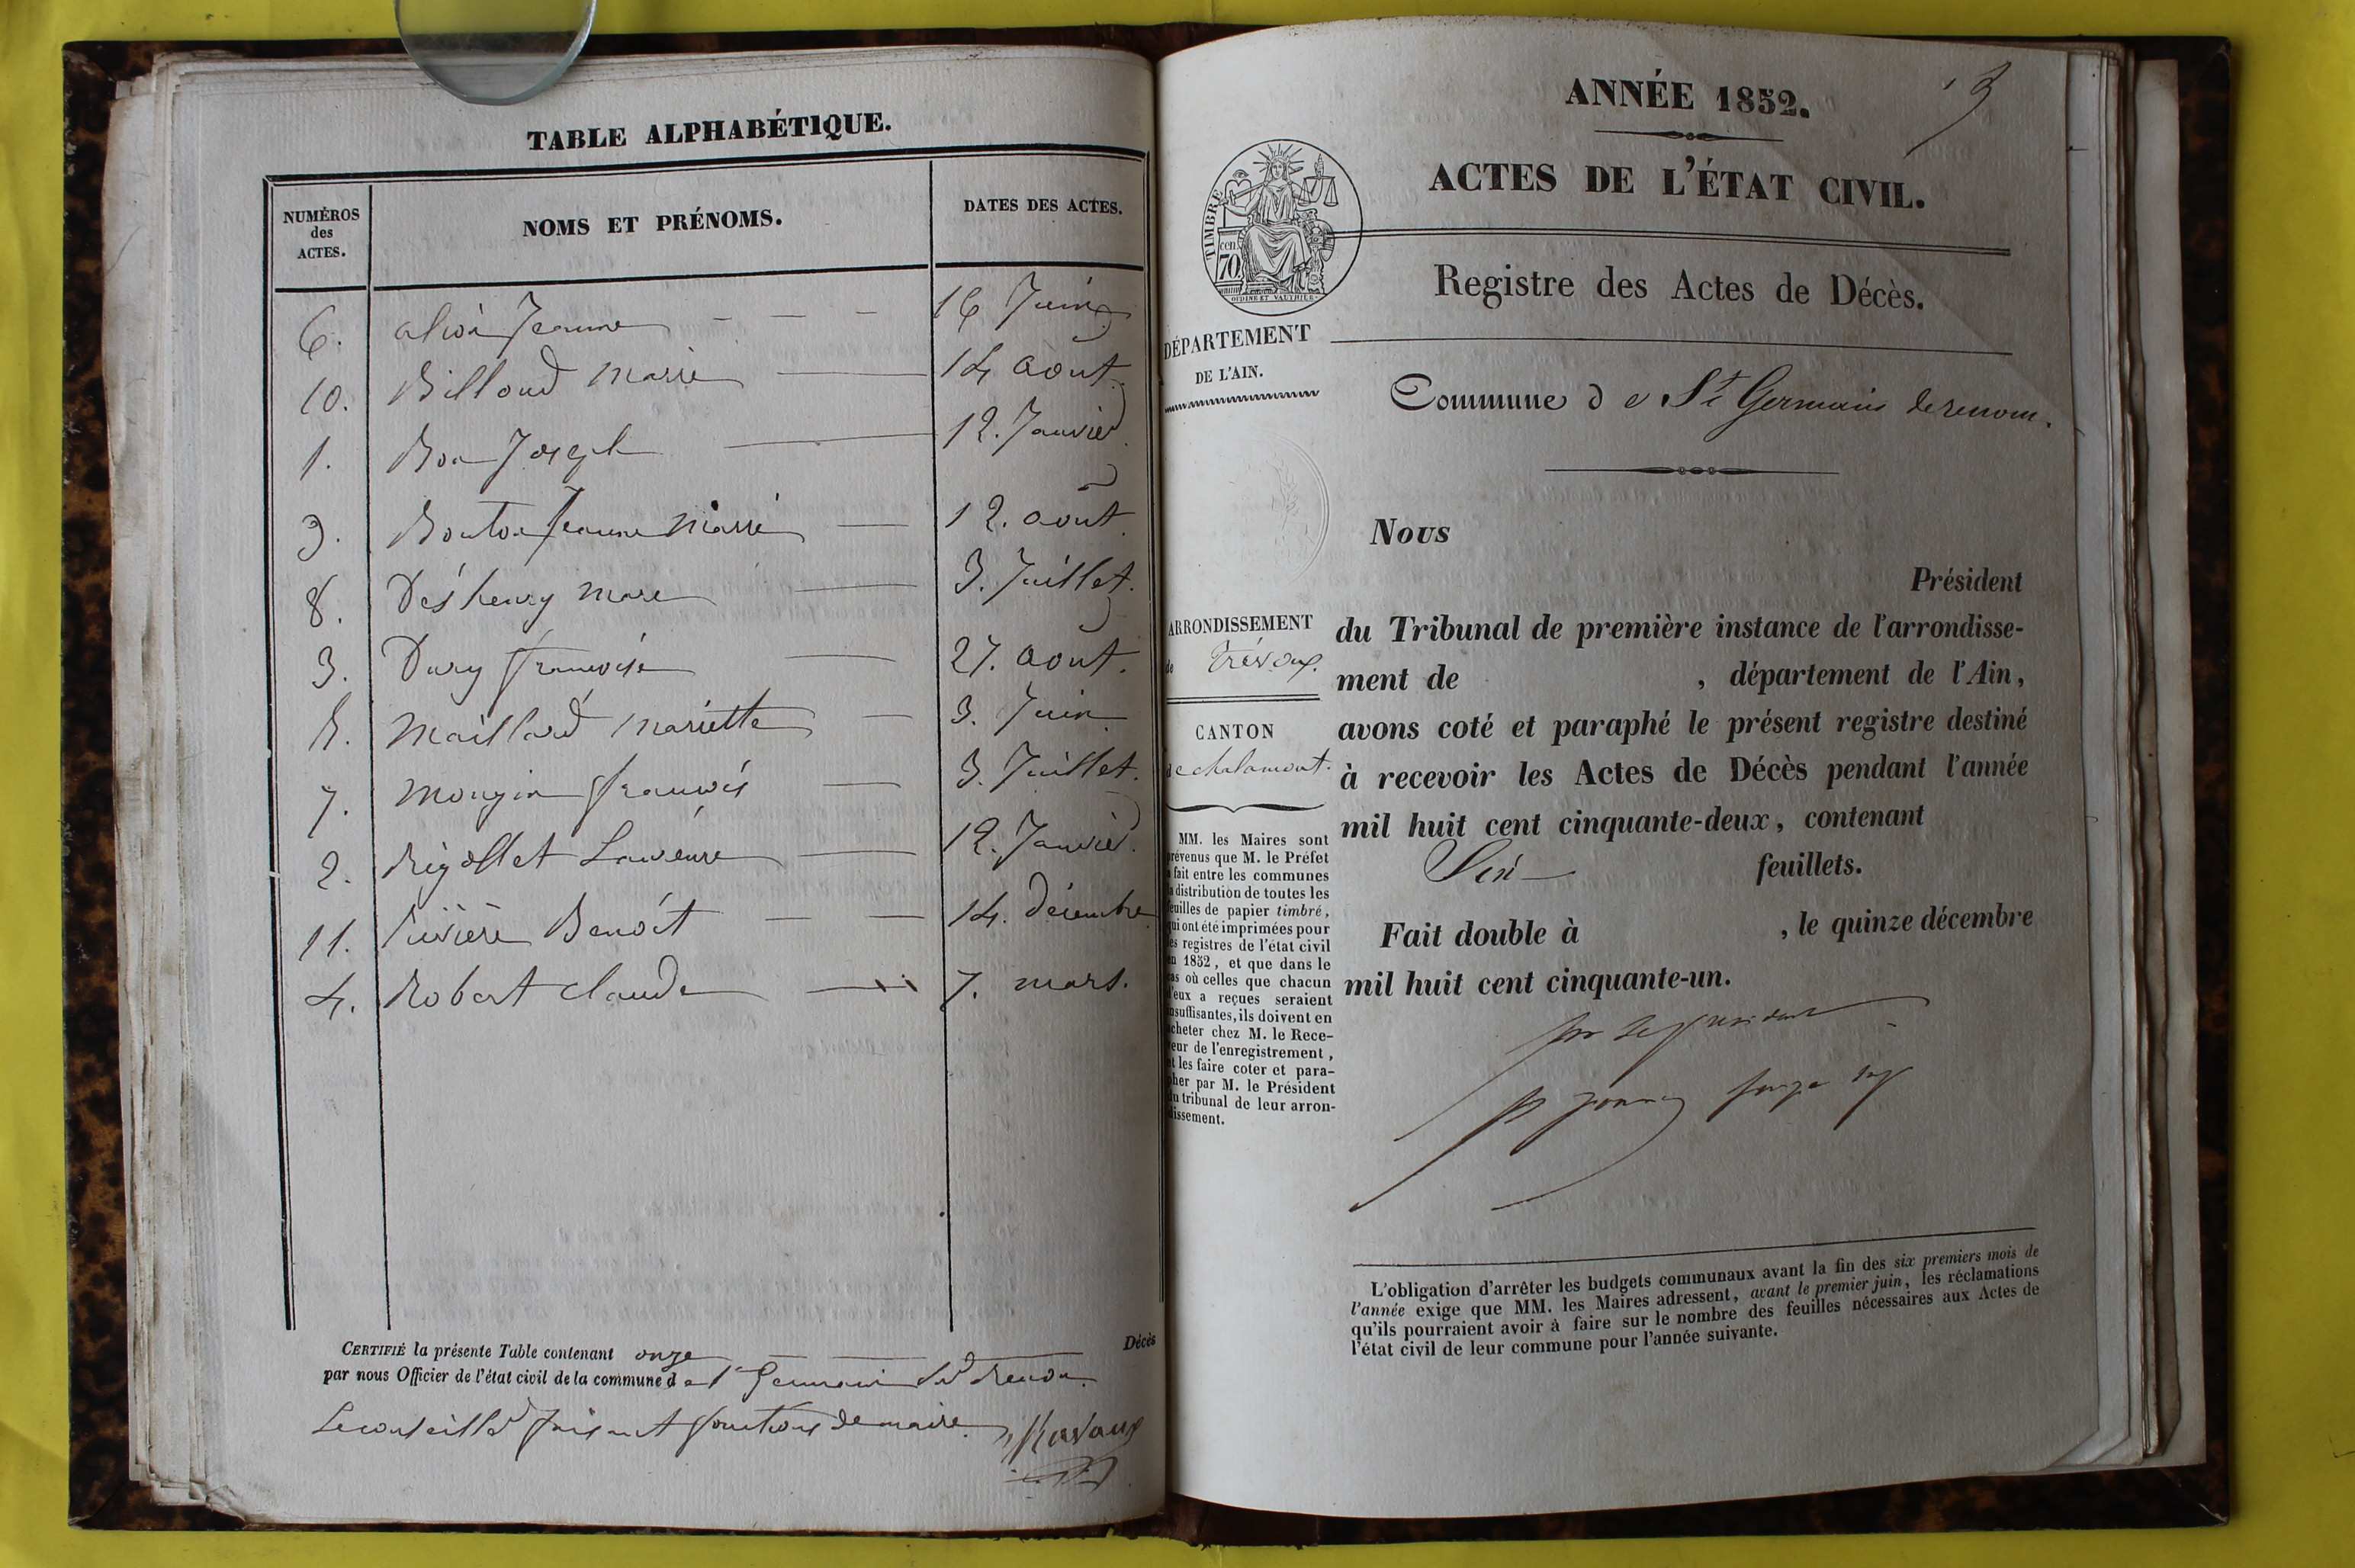 TABLE ALPHABÉTIQUE.
NUMÉROS
des
ACTES.
NOMS ET PRÉNOMS.
DATES DES ACTES.
6. Jeanne 16 Juin
10. Billoud marie 14 aout
1. Bon Joseph 12. Janvier
9. Bouton Jeanne Marie 12. aout
8. marie 3. Juillet.
3. Dury françoise 27. aout.
5. Maillard Mariette 3. Juin
7. Mongin françois 3. Juillet.
2. Rigollet 12. Janvier.
11. Rivière Benoît 14. décembre
4. Robert claude 7. mars.
CERTIFIÉ la présente Table contenant onze Décès
par nous Officier de l'état civil de la commune de St Germain sur Renon.
Le conseiller faisant fonctions de maire.
ANNÉE 1852.
ACTES DE L'ÉTAT CIVIL.
TIMBRE
cen.
70
Registre des Actes de Décès.
DÉPARTEMENT
DE L'AIN.
Commune de St Germain de renom.
Nous
Président
du Tribunal de première instance de l'arrondisse-
ment de , département de l'Ain,
avons coté et paraphé le présent registre destiné
à recevoir les Actes de Décès pendant l'année
mil huit cent cinquante-deux, contenant
Six feuillets.
Fait double à , le quinze décembre
mil huit cent cinquante-un.
pr le président
ARRONDISSEMENT
de Trévoux.
CANTON
de chalamont.
MM. les Maires sont
prévenus que M. le Préfet
a fait entre les communes
la distribution de toutes les
feuilles de papier timbré,
qui ont été imprimées pour
les registres de l'état civil
en 1852, et que dans le
cas où celles que chacun
d'eux a reçues seraient
insuffisantes, ils doivent en
acheter chez M. le Rece-
veur de l'enregistrement,
et les faire coter et para-
pher par M. le Président
du tribunal de leur arron-
dissement.
L'obligation d'arrêter les budgets communaux avant la fin des six premiers mois de
l'année exige que MM. les Maires adressent, avant le premier juin, les réclamations
qu'ils pourraient avoir à faire sur le nombre des feuilles nécessaires aux Actes de
l'état civil de leur commune pour l'année suivante.